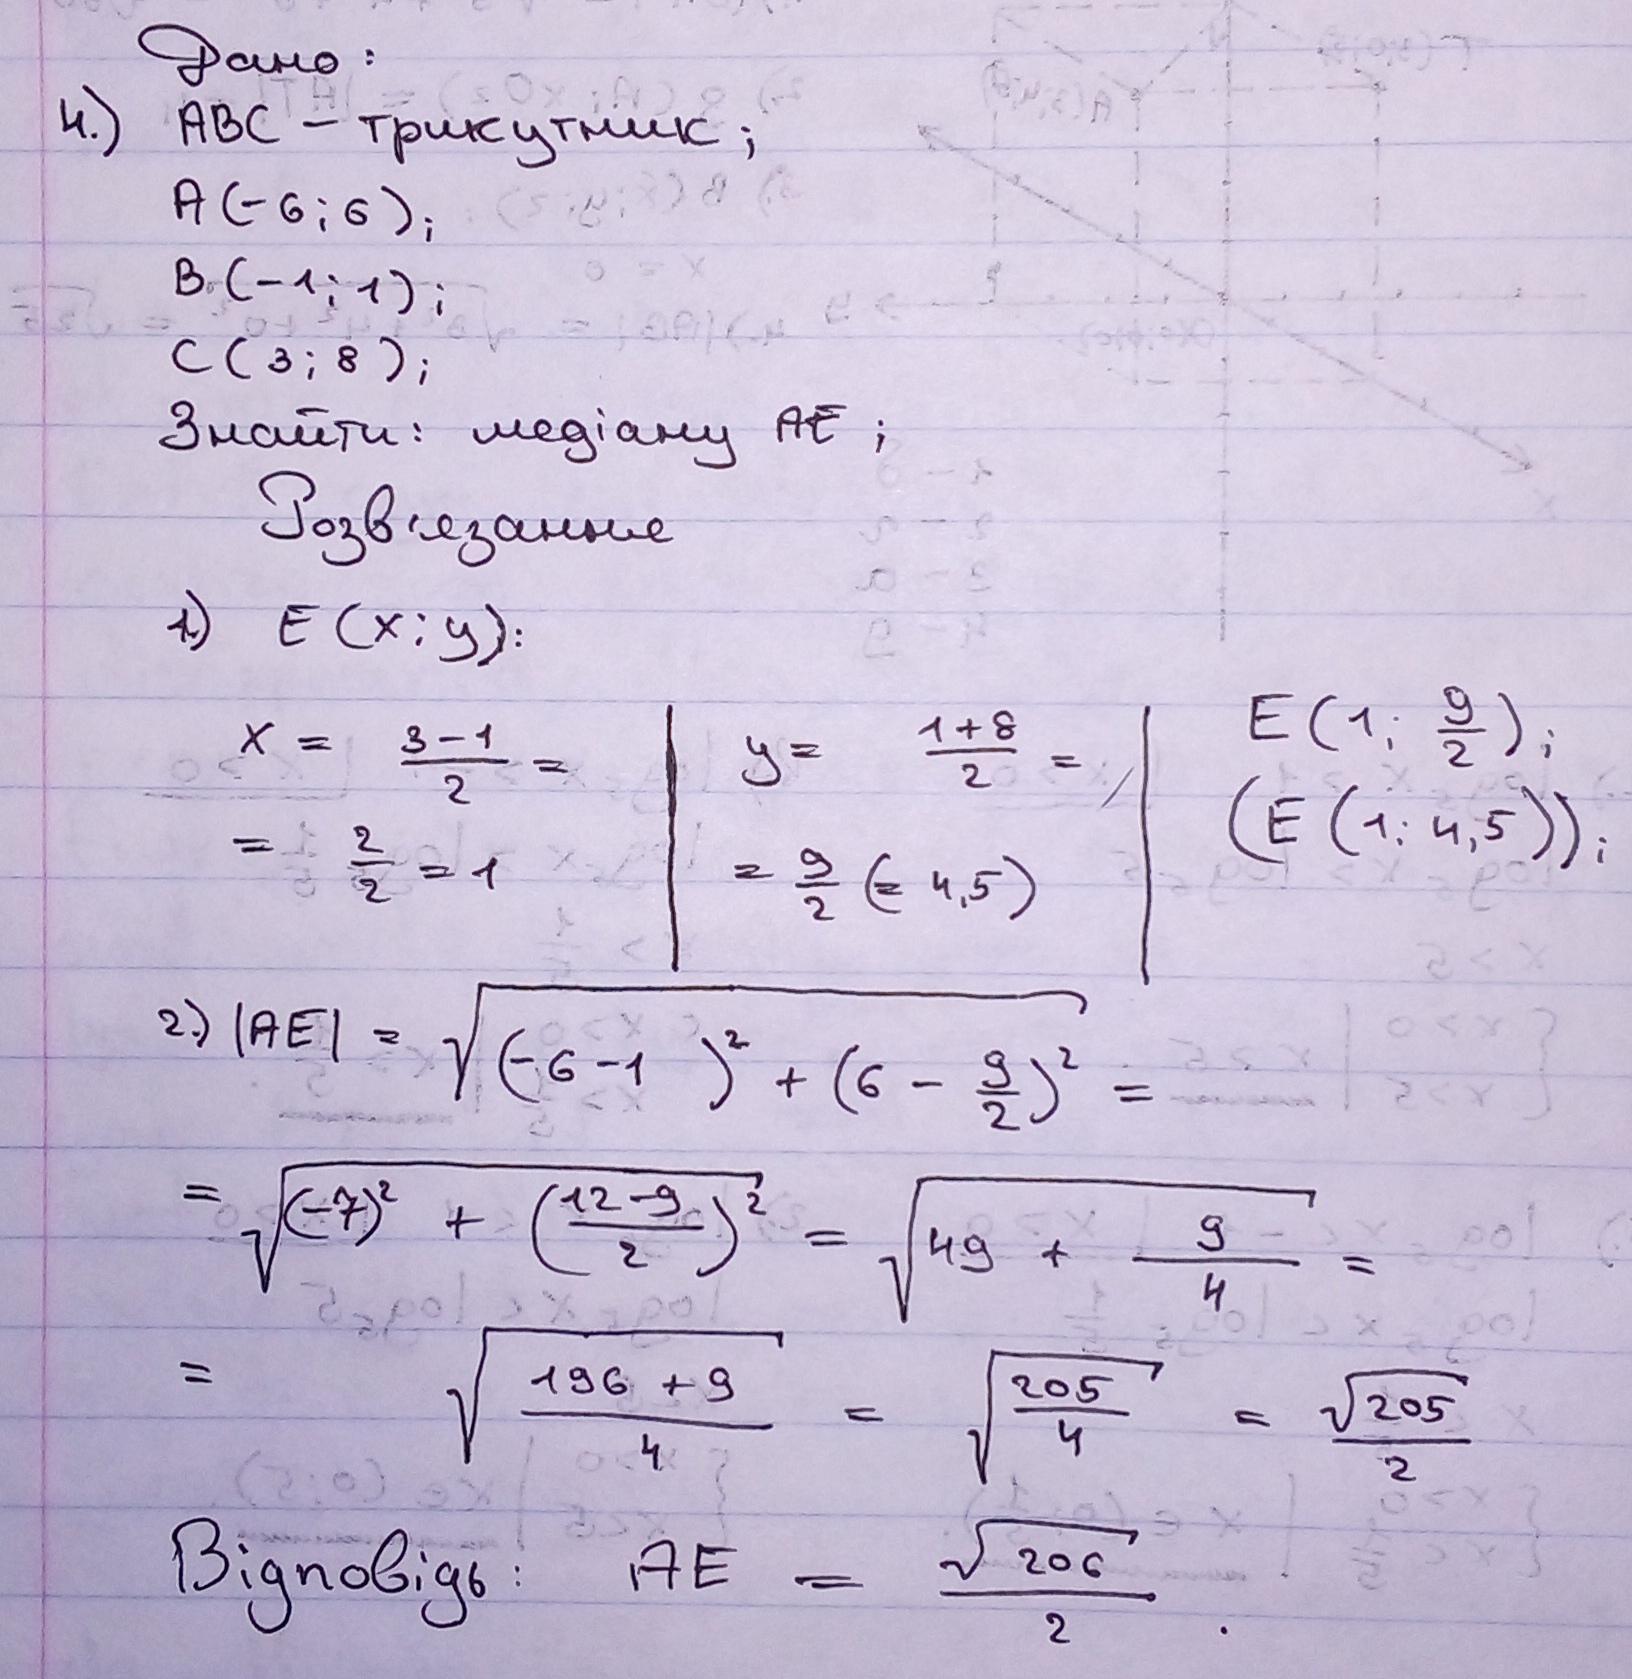 Дано:
4.) ABC – трикутник;
A(-6;6);
B.(-1;1);
C(3;8);
Знайти: медіану AE;
Розв'язання
1) E(x;y):
x = (3-1)/2 = | y = (1+8)/2 = | E(1; 9/2);
= 2/2 = 1 | = 9/2 (= 4,5) | (E(1; 4,5));
2.) |AE| = √((-6-1)² + (6 - 9/2)²) =
= √((-7)² + ((12-9)/2)²) = √(49 + 9/4) =
= √((196+9)/4) = √(205/4) = √205/2
Відповідь: AE = √206/2.